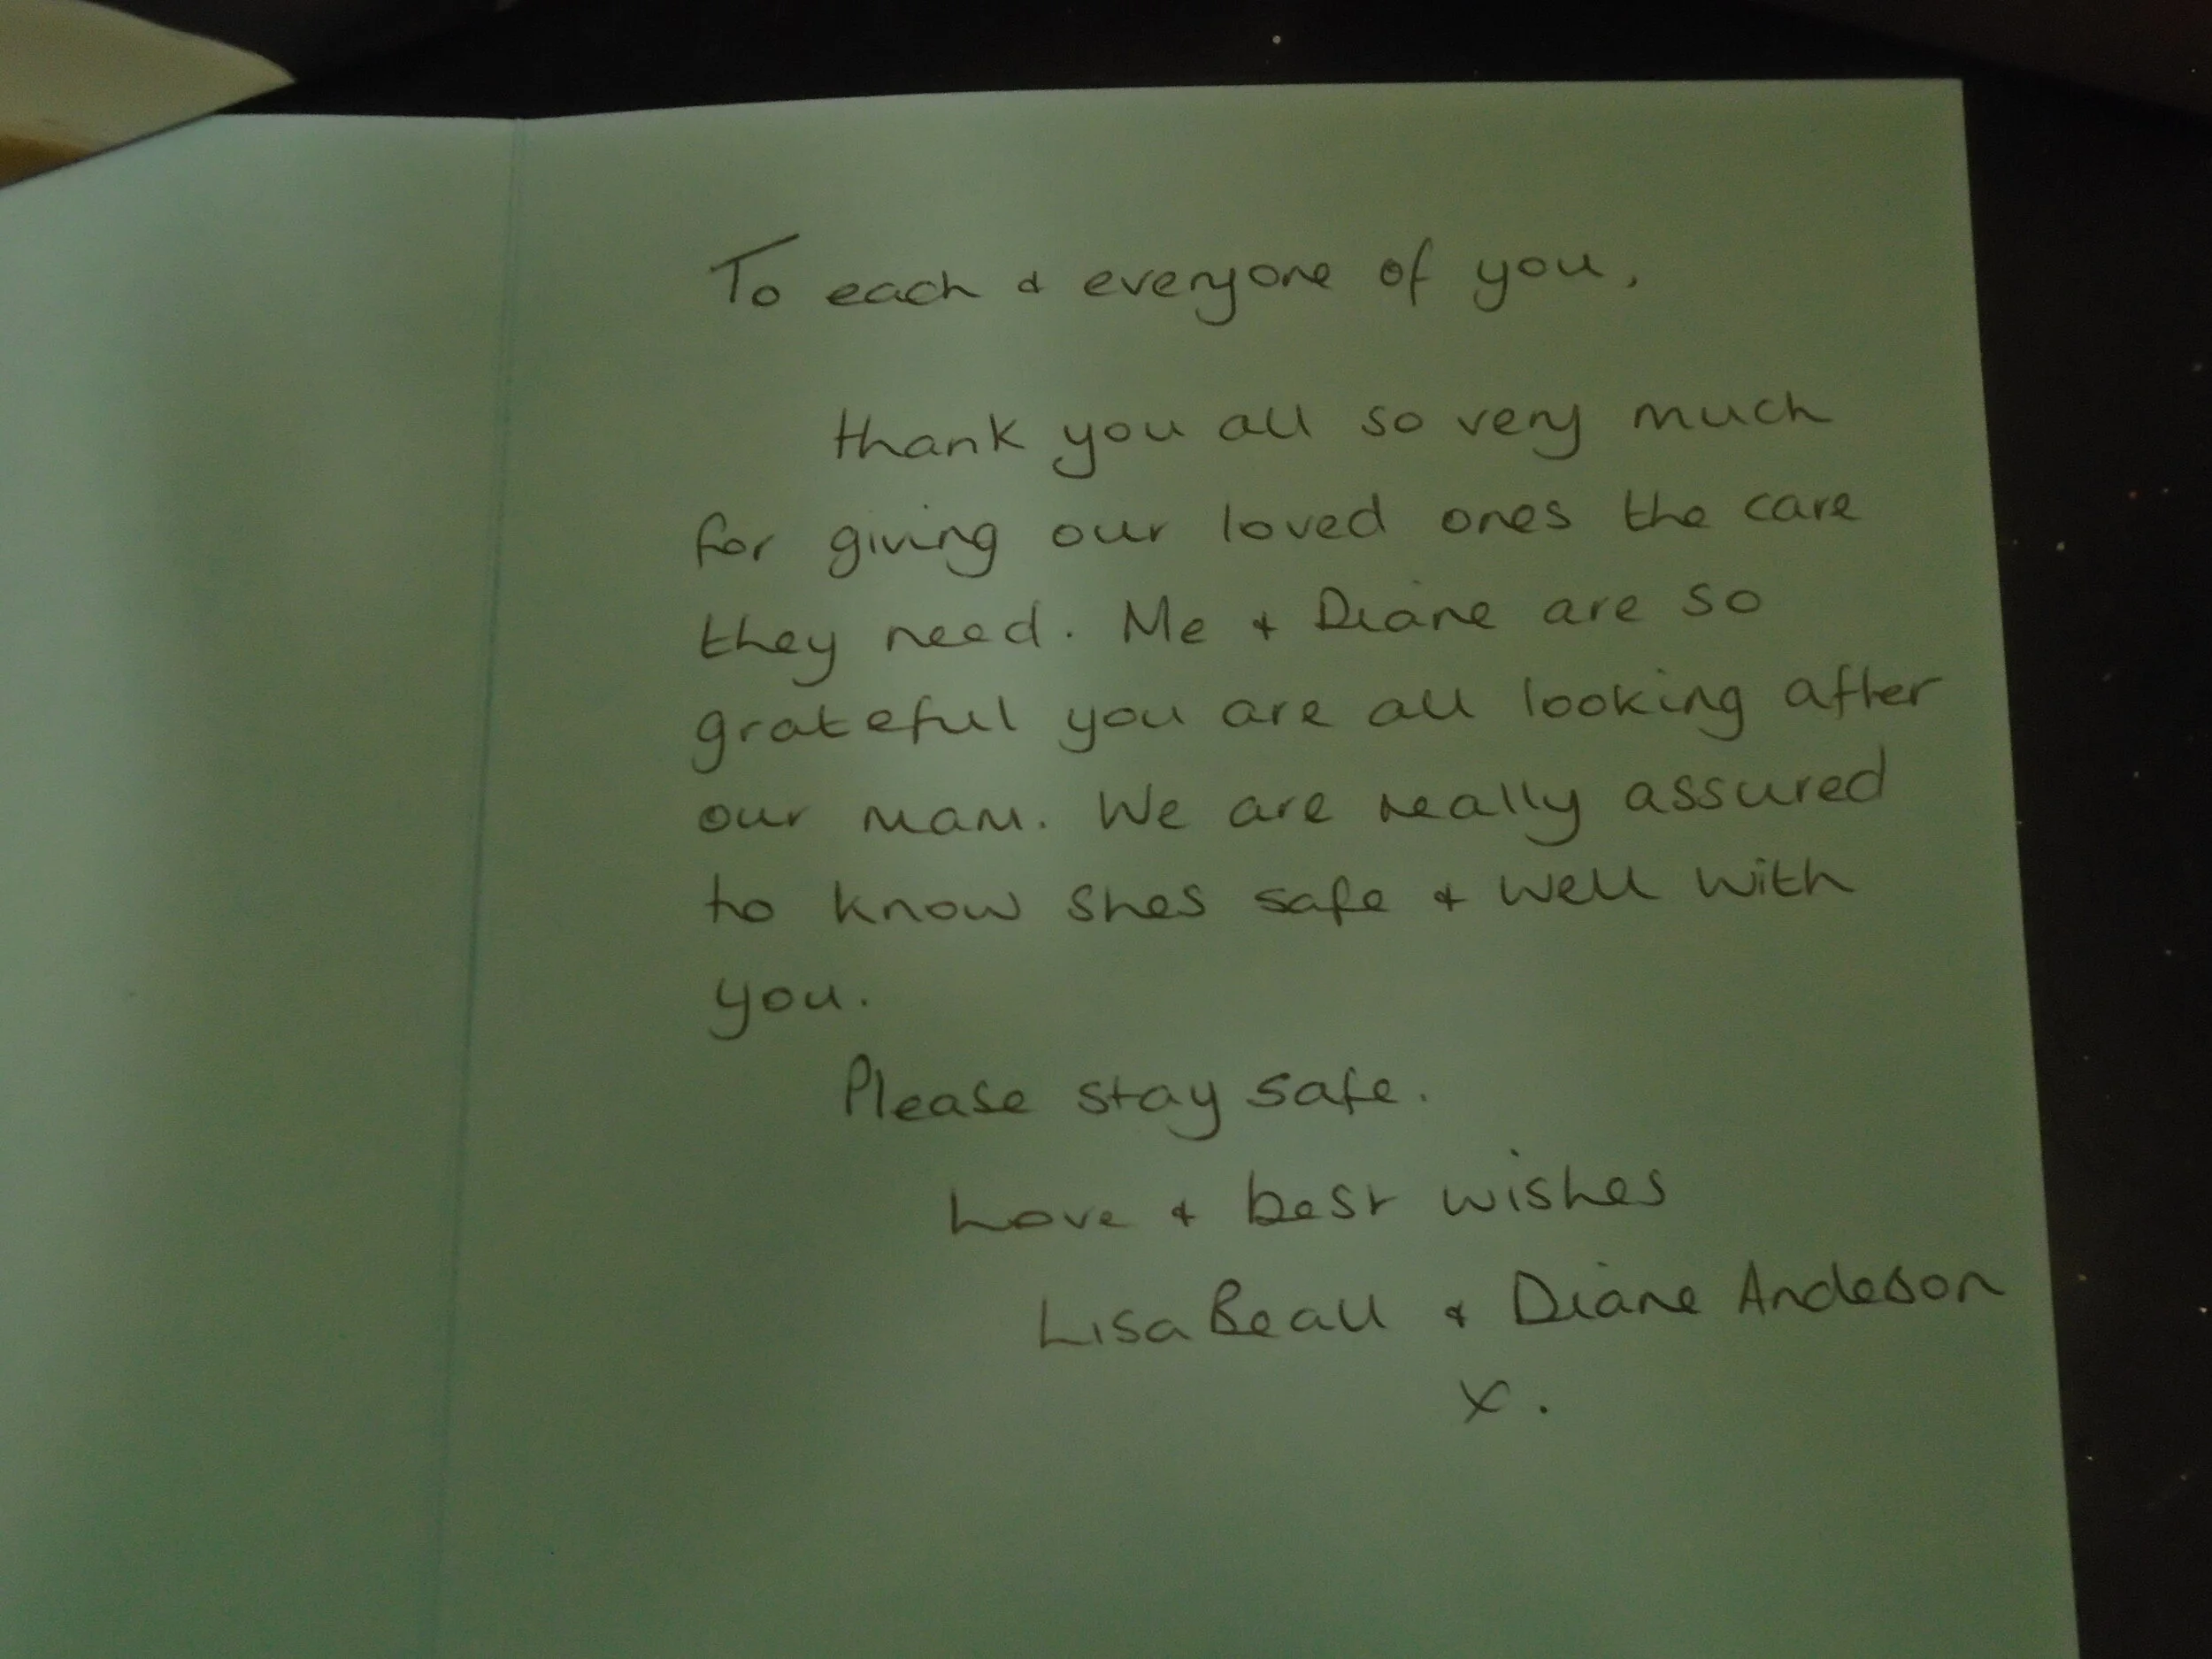 To each & everyone of you,
thank you all so very much
for giving our loved ones the care
they need. Me & Diane are so
grateful you are all looking after
our mam. We are really assured
to know shes safe & well with
you.
Please stay safe.
Love & best wishes
Lisa Beall & Diane Andeson
x.